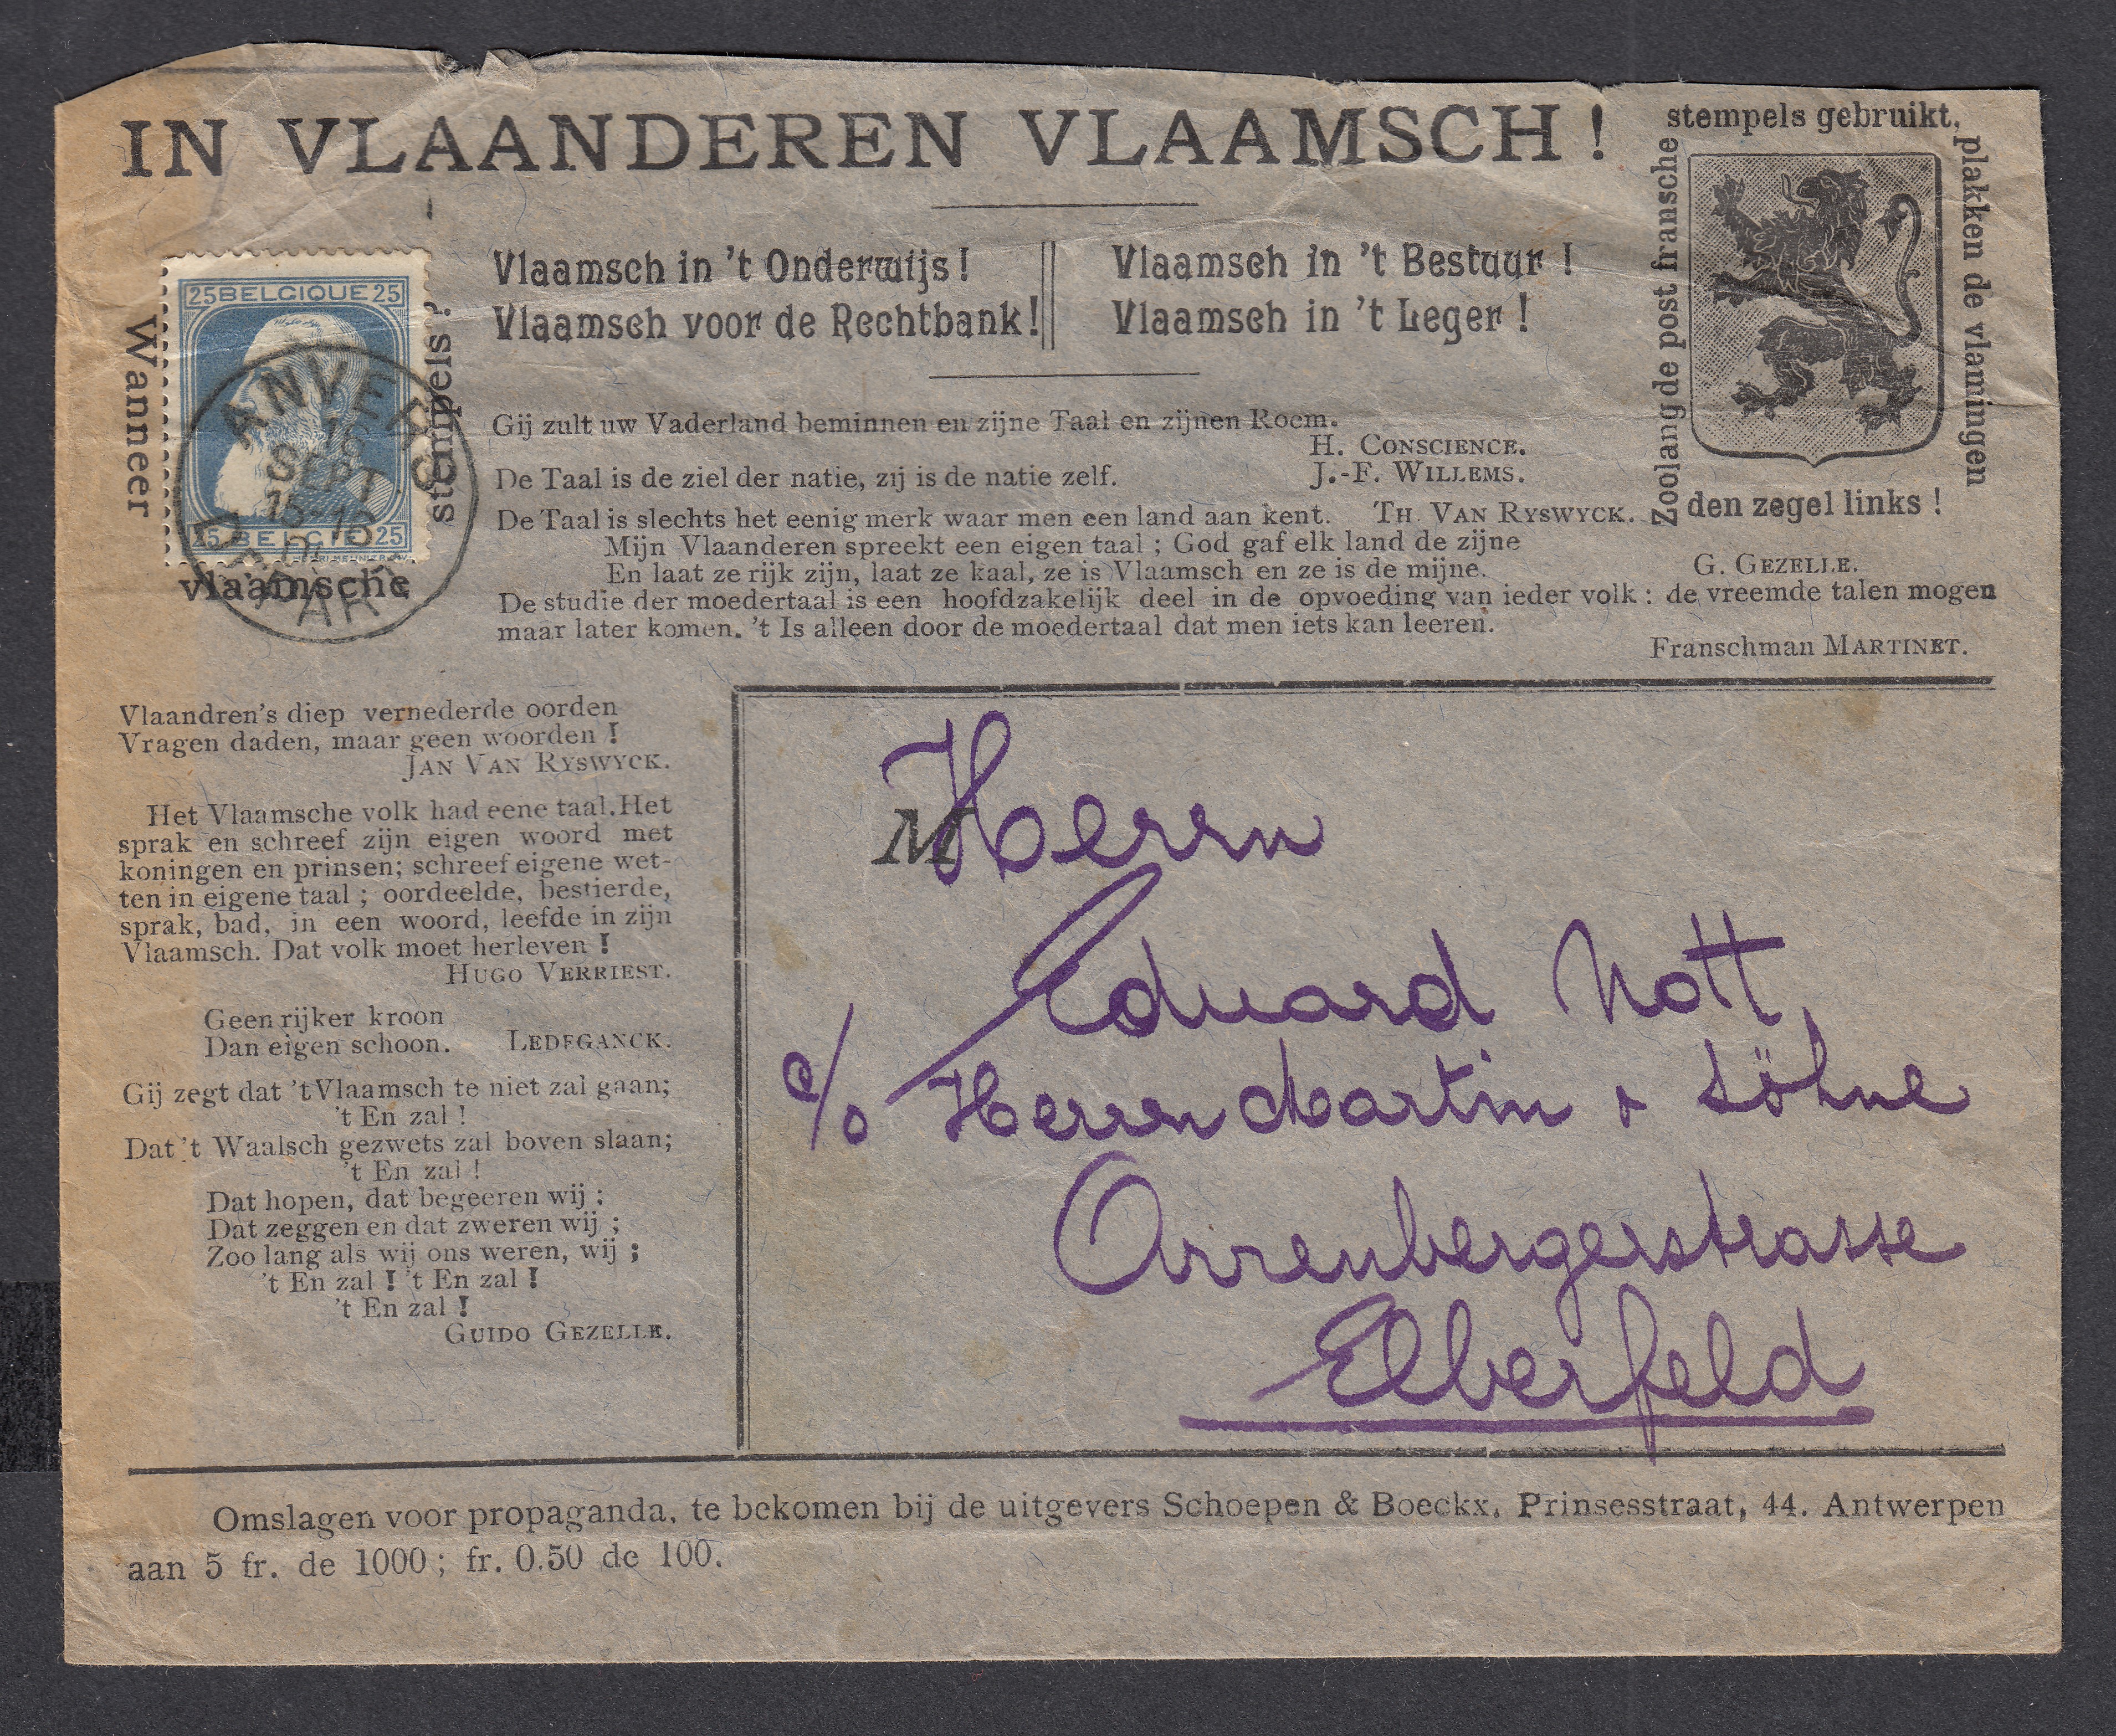 IN VLAANDEREN VLAAMSCH !
stempels gebruikt,
Zoolang de post fransche
plakken de vlamingen
den zegel links !
Wanneer
stempels ?
vlaamsche
25 BELGIQUE 25
25 BELGIE 25
ANVERS
16
SEPT
DÉPART
Vlaamsch in 't Onderwijs !
Vlaamsch voor de Rechtbank !
Vlaamsch in 't Bestuur !
Vlaamsch in 't Leger !
Gij zult uw Vaderland beminnen en zijne Taal en zijnen Roem.
H. CONSCIENCE.
De Taal is de ziel der natie, zij is de natie zelf. J.-F. WILLEMS.
De Taal is slechts het eenig merk waar men een land aan kent. TH. VAN RYSWYCK.
Mijn Vlaanderen spreekt een eigen taal ; God gaf elk land de zijne
En laat ze rijk zijn, laat ze kaal, ze is Vlaamsch en ze is de mijne.
G. GEZELLE.
De studie der moedertaal is een hoofdzakelijk deel in de opvoeding van ieder volk : de vreemde talen mogen
maar later komen. 't Is alleen door de moedertaal dat men iets kan leeren.
Franschman MARTINET.
Vlaandren's diep vernederde oorden
Vragen daden, maar geen woorden !
JAN VAN RYSWYCK.
Het Vlaamsche volk had eene taal. Het
sprak en schreef zijn eigen woord met
koningen en prinsen; schreef eigene wet-
ten in eigene taal ; oordeelde, bestierde,
sprak, bad, in een woord, leefde in zijn
Vlaamsch. Dat volk moet herleven !
HUGO VERRIEST.
Geen rijker kroon
Dan eigen schoon. LEDEGANCK.
Gij zegt dat 't Vlaamsch te niet zal gaan;
't En zal !
Dat 't Waalsch gezwets zal boven slaan;
't En zal !
Dat hopen, dat begeeren wij ;
Dat zeggen en dat zweren wij ;
Zoo lang als wij ons weren, wij ;
't En zal ! 't En zal !
't En zal !
GUIDO GEZELLE.
M
Herrn
Eduard Nott,
c/o Herren Martin & Söhne
Arrenbergerstrasse
Elberfeld
Omslagen voor propaganda, te bekomen bij de uitgevers Schoepen & Boeckx, Prinsesstraat, 44. Antwerpen
aan 5 fr. de 1000 ; fr. 0.50 de 100.